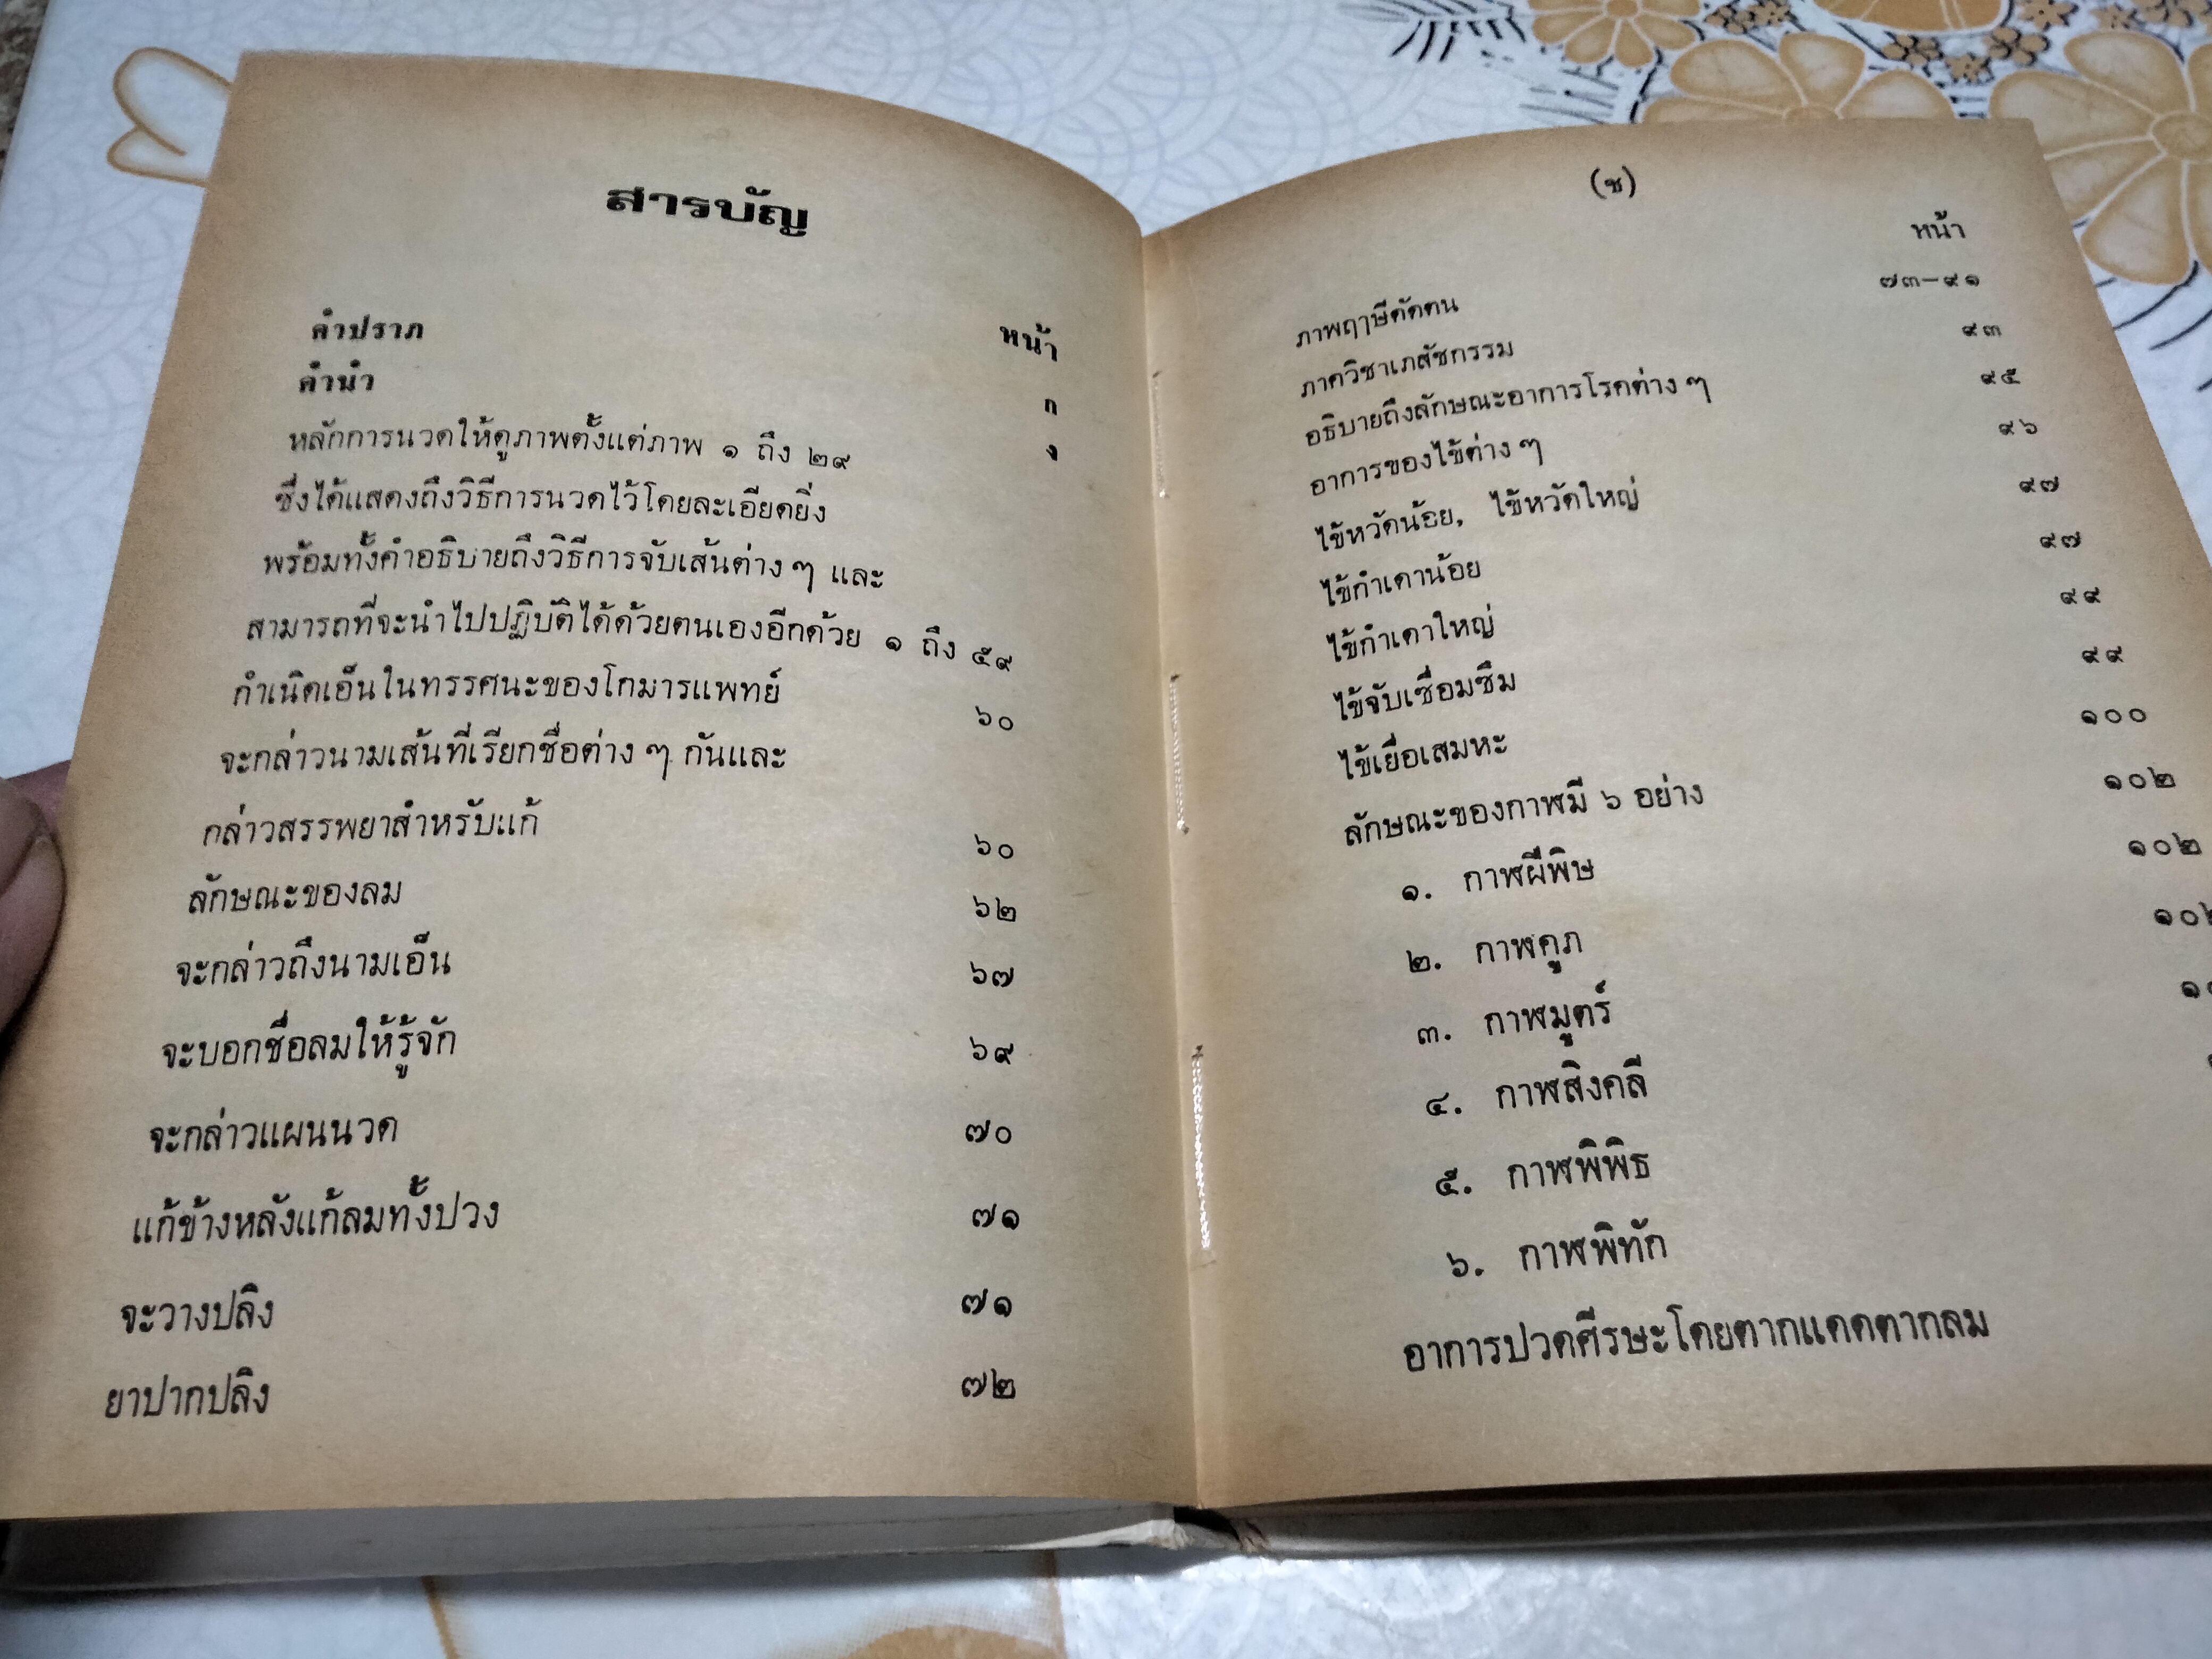 สารบัญ
หน้า
คำปรารภ ก
คำนำ ง
หลักการนวดให้ดูภาพตั้งแต่ภาพ ๑ ถึง ๒๙
ซึ่งได้แสดงถึงวิธีการนวดไว้โดยละเอียดยิ่ง
พร้อมทั้งคำอธิบายถึงวิธีการจับเส้นต่าง ๆ และ
สามารถที่จะนำไปปฏิบัติได้ด้วยตนเองอีกด้วย ๑ ถึง ๕๙
กำเนิดเอ็นในทรรศนะของโกมารแพทย์ ๖๐
จะกล่าวนามเส้นที่เรียกชื่อต่าง ๆ กันและ
กล่าวสรรพยาสำหรับแก้ ๖๐
ลักษณะของลม ๖๒
จะกล่าวถึงนามเอ็น ๖๗
จะบอกชื่อลมให้รู้จัก ๖๙
จะกล่าวแผนนวด ๗๐
แก้ข้างหลังแก้ลมทั้งปวง ๗๑
จะวางปลิง ๗๑
ยาปากปลิง ๗๒
(ช)
หน้า
ภาพฤๅษีดัดตน ๗๓–๙๑
ภาควิชาเภสัชกรรม ๙๓
อธิบายถึงลักษณะอาการโรคต่าง ๆ ๙๕
อาการของไข้ต่าง ๆ ๙๖
ไข้หวัดน้อย, ไข้หวัดใหญ่ ๙๗
ไข้กำเดาน้อย ๙๗
ไข้กำเดาใหญ่ ๙๙
ไข้จับเชื่อมซึม ๙๙
ไข้เยื่อเสมหะ ๑๐๐
ลักษณะของกาฬมี ๖ อย่าง ๑๐๒
๑. กาฬฝีพิษ ๑๐๒
๒. กาฬคูภ
๓. กาฬมูตร์
๔. กาฬสิงคลี
๕. กาฬพิพิธ
๖. กาฬพิทัก
อาการปวดศีรษะโดยตากแดดตากลม